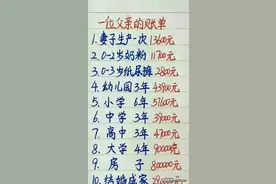 一位父亲的账单
1.妻子生产一次 13600元
2.0-2岁奶粉 11700元
3.0-3岁纸尿裤 2800元
4.幼儿园3年 45900元
5.小学 6年 57600元
6.中学 3年 39000元
7.高中 3年 47000元
8.大学 4年 90000元
9.房子 800000元
10.结婚成家